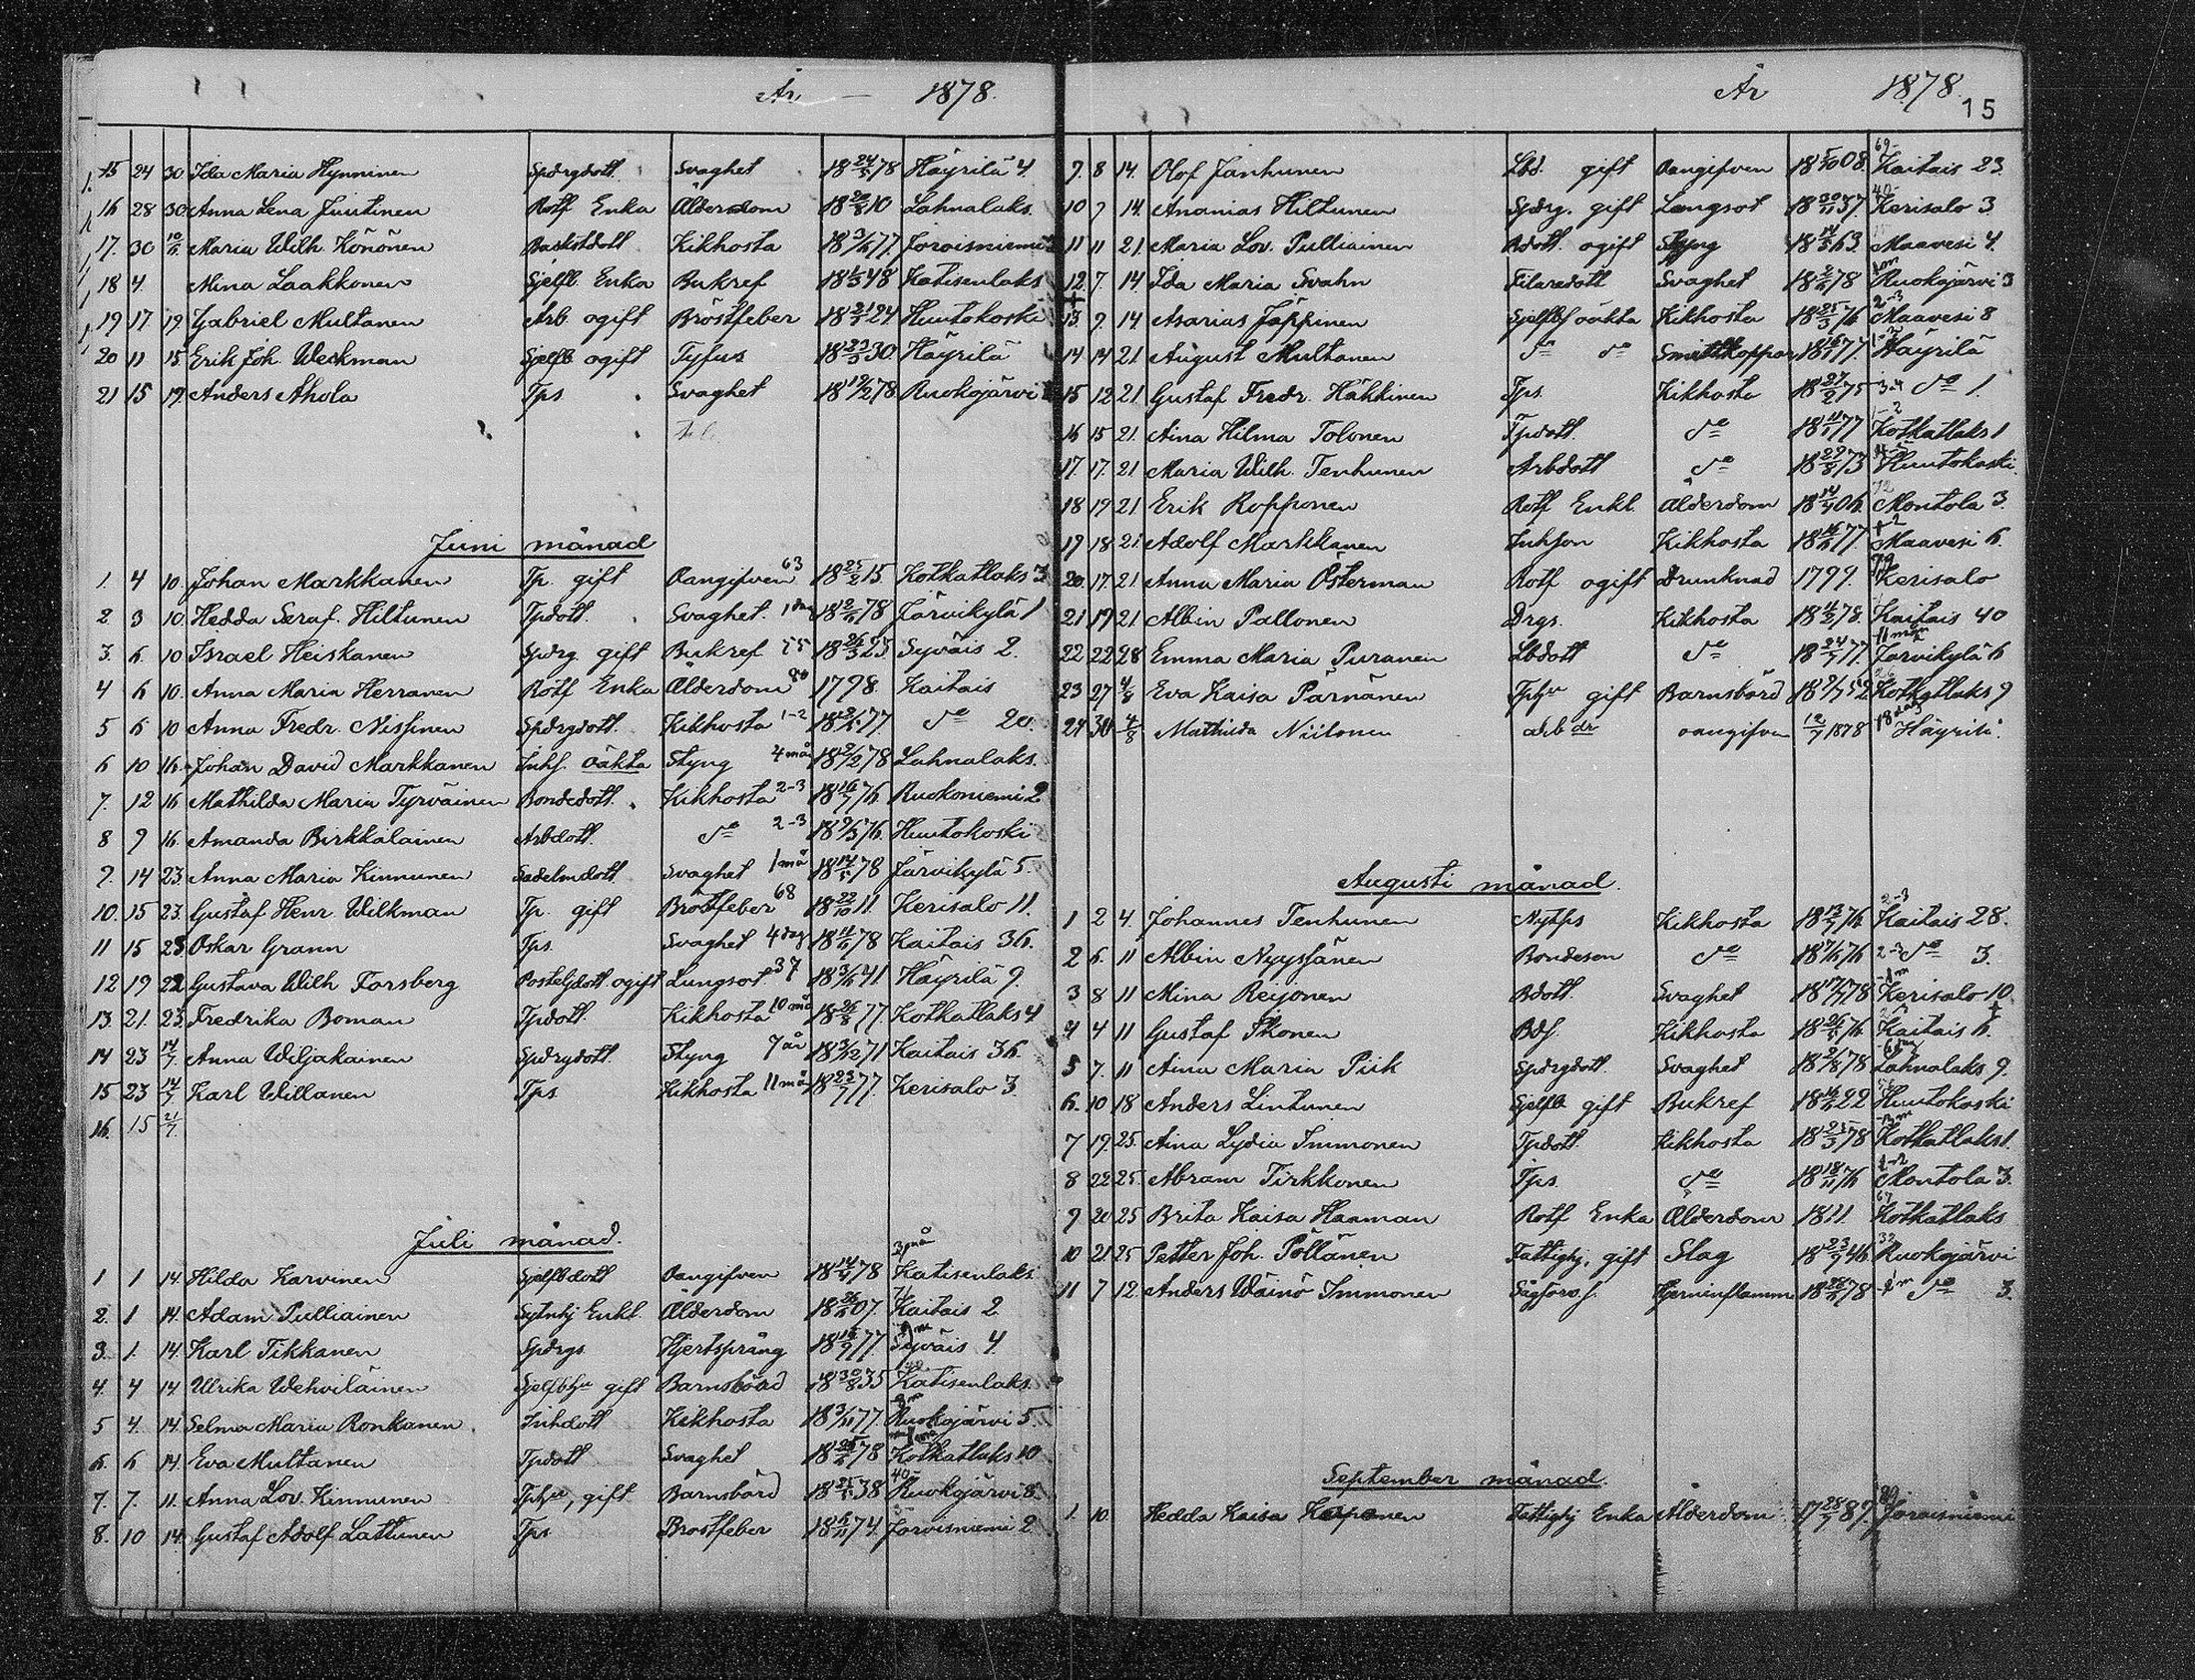 År — 1878.
15 24 30 Ida Maria Hynninen Spdrgdott. Svaghet 18 24/5 78 Häyrilä 4.
16 28 30 Anna Lena Juutinen Rotf Enka Ålderdom 10 Lahnalaks.
17. 30 10/6 Maria Wilh. Könönen Kikhosta 77. Joroisniemi
18 4. Mina Laakkonen Sjelfb. Enka Bukref 48 Katisenlaks
19 17 19. Gabriel Multanen Arb. ogift Bröstfeber 24 Huutokoski
20 11 15. Erik Joh. Weckman Sjelfb ogift Tyfus 30. Häyrilä
21 15 19. Anders Ahola Tps Svaghet 18 19/2 78. Ruokojärvi
Juni månad
1. 4 10. Johan Markkanen Tp. gift Oangifven 63 18 25/2 15. Kotkatlaks 3
2. 3 10. Hedda Seraf. Hiltunen Tpdott. Svaghet. 1 dag 18 2/6 78 Järvikylä 1
3. 6. 10 Israel Heiskanen Spdrg. gift Bukref 55 18 26/3 23 Syväis 2.
4 6 10. Anna Maria Herranen Rotf Enka Ålderdom 80 1798. Kaitais
5 6 10 Anna Fredr. Nissinen Spdrgdott. Kikhosta 1-2 77 do 20.
6 10 16. Johan David Markkanen Inhs. oäkta Styng 4 mån 18 2/2 78 Lahnalaks.
7. 12 16 Mathilda Maria Tyrväinen Bondedott. Kikhosta 2-3 18 16/7 76 Ruokoniemi 2
8 9 16. Amanda Birkkalainen Arbdott. do 2-3 18 9/3 76. Huutokoski
9. 14 23. Anna Maria Kinnunen Sadelmdott Svaghet 1 må 18 14/5 78 Järvikylä 5.
10. 15 23. Gustaf Henr. Wilkman Tp. gift Bröstfeber 68 18 22/10 11. Kerisalo 11.
11 15 23 Oskar Grann Tps. Svaghet 4 dag 18 11/6 78 Kaitais 36.
12 19 22 Gustava Wilh Forsberg ogift Lungsot 37 41 Häyrilä 9.
13. 21. 23. Fredrika Boman Tpdott. Kikhosta 10 må 18 26/8 77. Kotkatlaks 4
14 23 14/7. Anna Wiljakainen Spdrgdott. Styng 7 år 18 3/12 71 Kaitais 36.
15 23 14/7 Karl Willanen Tps Kikhosta 11 mån 18 23/7 77. Kerisalo 3.
16. 15 21/7.
Juli månad.
1 1 14. Hilda Karvinen Sjelfbdott Oangifven 18 14/4 78 3 må Katisenlaks
2. 1 14. Adam Pulliainen Enkl. Ålderdom 07. 71 Kaitais 2
3. 1. 14. Karl Tikkanen Spdrgs Hjertsprång 77. Syväis 4
4. 4 14 Ulrika Wehviläinen gift Barnsbörd 18 30/8 35 Katisenlaks.
5 4. 14. Selma Maria Ronkanen. Inhdott Kikhosta 18 3/11 77. Ruokojärvi 5.
6. 6 14. Eva Multanen Tpdott Svaghet 78 Kotkatlaks 10
7. 7. 11. Anna Lov. Kinnunen gift Barnsbörd 38 40 Ruokojärvi 8.
8. 10 14. Gustaf Adolf Lattunen Tps Bröstfeber 74. Joroisniemi 2
År 1878.
15
9. 8 14. Olof Janhunen Lbd. gift Oangifven 18 5/10 08. 69 Kaitais 23.
10 9 14. Ananias Hiltunen Spdrg. gift Lungsot 18 30/11 37. 40 Kerisalo 3
11 11 21. Maria Lov. Pulliainen Bdott. ogift Styng 18 14/5 63. Maavesi 4.
12. 7. 14. Ida Maria Svahn Filaredott Svaghet 78 Ruokojärvi 3
13. 9. 14 Asarias Jäppinen oäkta Kikhosta 18 25/3 76 2-3 Maavesi 8
14 14 21 August Multanen do do Smittkoppor 77. Häyrilä
15 12 21. Gustaf Fredr. Häkkinen Tps. Kikhosta 18 27/2 75 3-4 do 1.
16 15 21. Aina Hilma Tolonen Tpdott. do 77 1-2 Kotkatlaks 1
17. 17. 21 Maria Wilh. Tenhunen Arbdott do 18 29/8 73 Huutokoski.
18 19 21. Erik Ropponen Rotf Enkl. Ålderdom 06. 72 Montola 3.
19 18 21 Adolf Markkanen Inhson Kikhosta 77. Maavesi 6.
20. 17. 21 Anna Maria Österman Rotf ogift Drunknad 1799. 79 Kerisalo
21 19 21 Albin Pallonen Drgs. Kikhosta 78. Kaitais 40
22 22 28 Emma Maria Puranen Lbdott do 18 24/7 77. 11 mån Järvikylä 6
23 27 4/8 Eva Kaisa Pärnänen gift Barnsbörd 52 Kotkatlaks 9
24 30 4/8 Mathilda Niilonen oangifven 12/7 1878 18 dag Häyrilä.
Augusti månad.
1 2 4. Johannes Tenhunen Nytps Kikhosta 18 13/7 76 2-3 Kaitais 28.
2 6. 11 Albin Nyyssänen Bondeson do 76 2-3 do 3.
3 8 11 Mina Reijonen Bdott. Svaghet 18 17/7 78 Kerisalo 10.
4 4 11 Gustaf Ikonen Bds. Kikhosta 76 Kaitais 6.
5 7. 11 Aina Maria Piik Spdrgdott. Svaghet 78 Lahnalaks 9.
6. 10 18 Anders Lintunen Sjelfb gift Bukref 22 Huutokoski
7 19. 25. Aina Lydia Immonen Tpdott. Kikhosta 18 25/3 78 Kotkatlaks 1.
8 22 25. Abram Tirkkonen Tps. do 18 18/11 76 1-2 Montola 3.
9 20 25 Brita Kaisa Haaman Rotf Enka Ålderdom 1811. 67 Kotkatlaks
10 21 25 Petter Joh. Pöllänen Fattighj. gift Slag 18 23/9 46 32 Ruokojärvi
11 7 12. Anders Wäinö Immonen Hjerninflamm 78 do 3.
September månad.
1. 10. Hedda Kaisa Fattighj Enka Ålderdom. 17 28/7 87. Joroisniemi